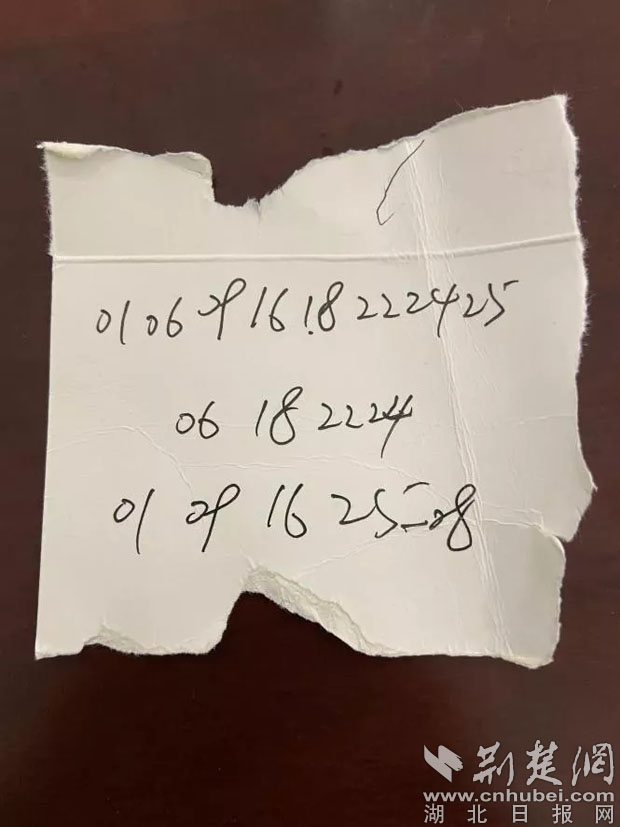 01 06 09 16 18 22 24 25
06 18 22 24
01 09 16 25=08
荆楚網
www.cnhubei.com
湖北日报网